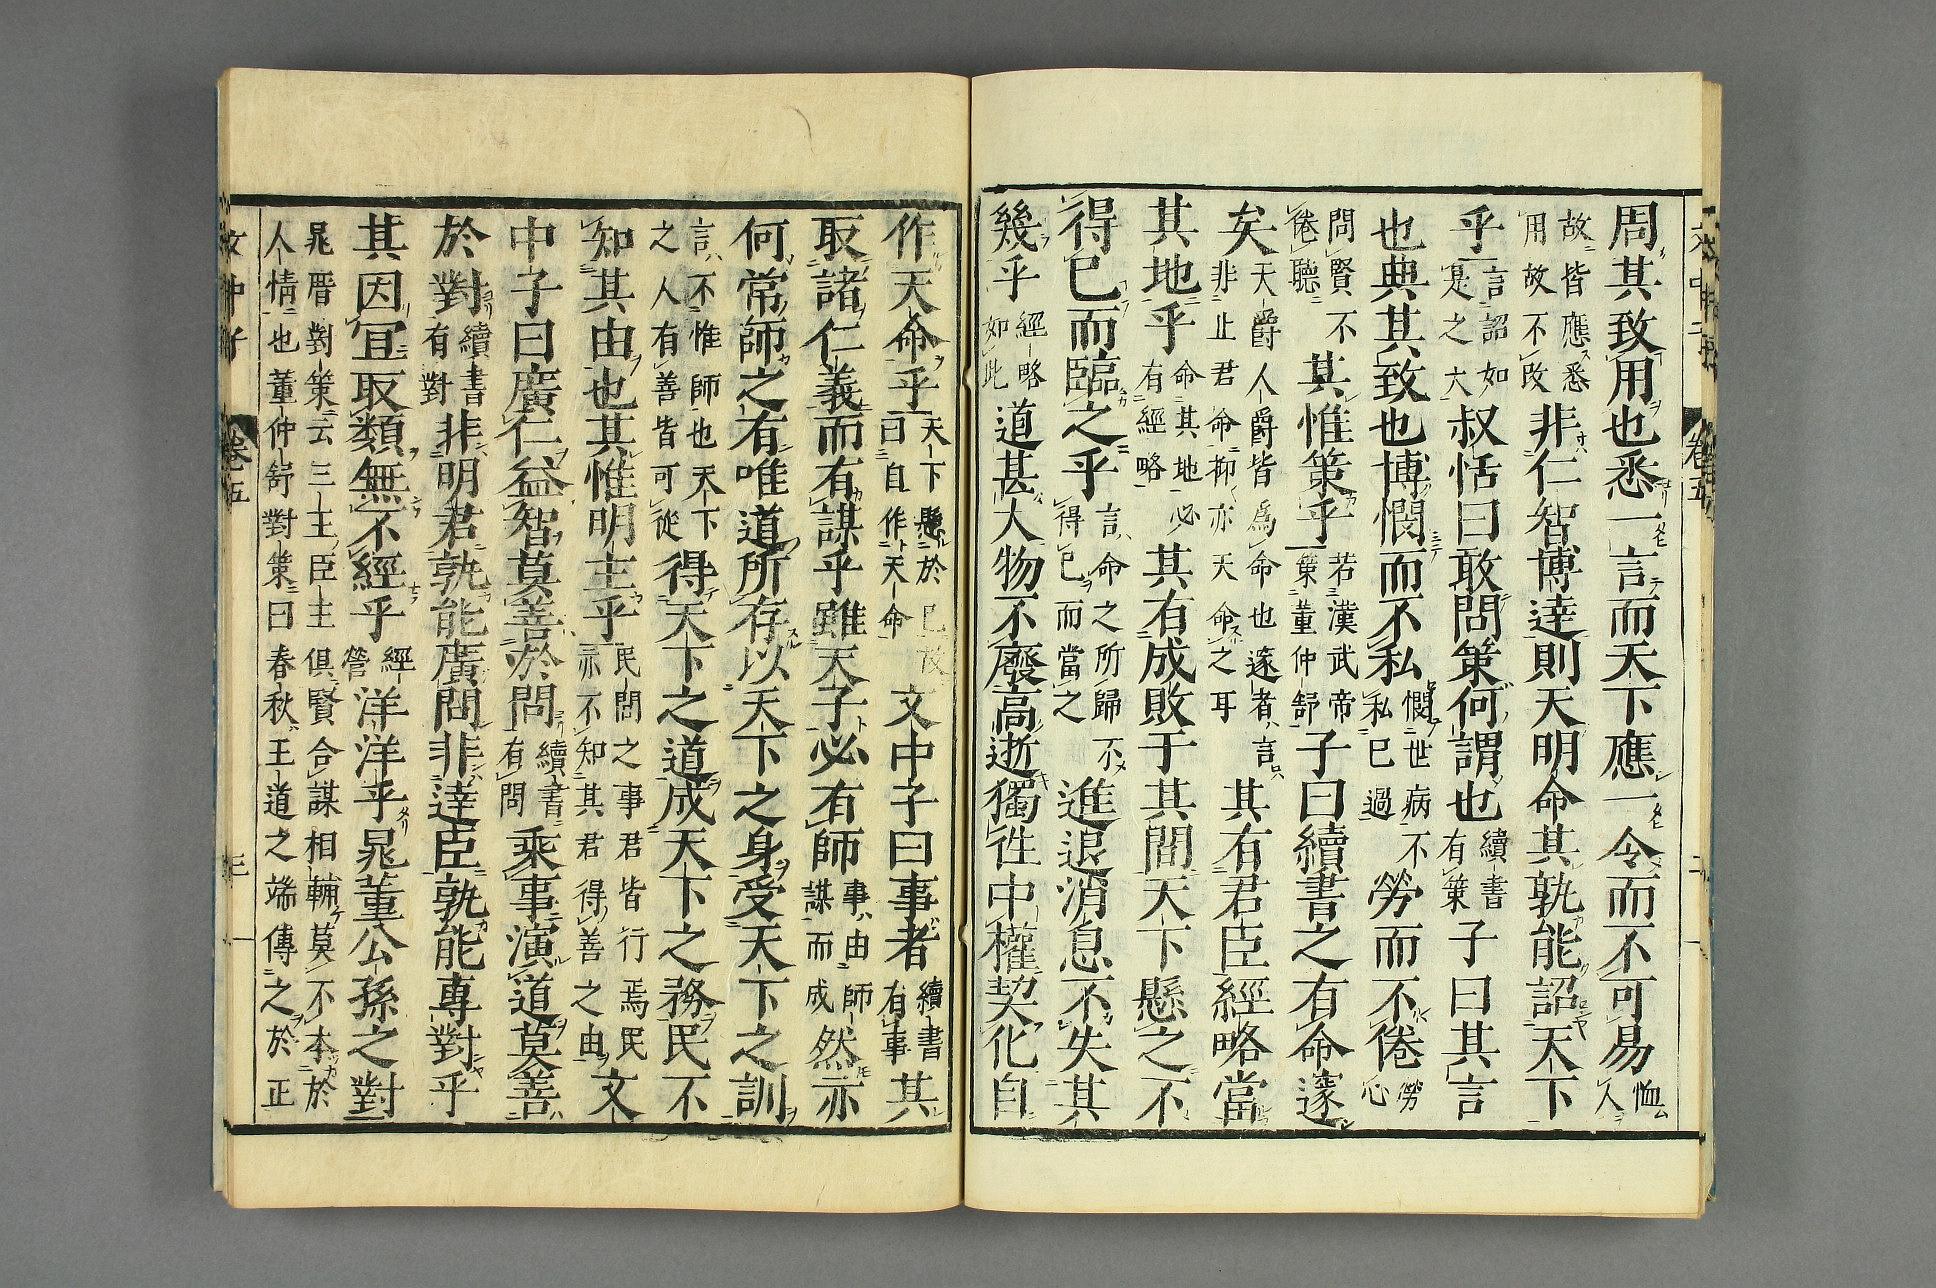 周其致用也悉一言而天下應一令而不可易恤人
故皆應悉用故不改非仁智博達則天明命其孰能詔天下
乎言詔如是之大叔恬曰敢問策何謂也續書有策子曰其言
也典其致也博憫而不私憫世病不私已過勞而不倦勞心
問賢不倦聽其惟策乎若漢武帝策董仲舒子曰續書之有命邃
矣天爵人爵皆爲命也邃者言非止君命抑亦天命之耳其有君臣經略當
其地乎命其地必有經略其有成敗于其間天下懸之不
得已而臨之乎言命之所歸不得已而當之進退消息不失其
幾乎經略如此道甚大物不廢高逝獨徃中權契化自
作天命乎天下懸於已故曰自作天命文中子曰事者續書有事其
取諸仁義而有謀乎雖天子必有師事由師謀而成然亦
何常師之有唯道所存以天下之身受天下之訓
言不惟師也天下之人有善皆可從得天下之道成天下之務民不
知其由也其惟明主乎民間之事君皆行焉民亦不知其君得善之由文
中子曰廣仁益智莫善於問續書有問乘事演道莫善
於對續書有對非明君孰能廣問非達臣孰能專對乎
其因宜取類無不經乎經營洋洋乎晁董公孫之對
晁厝對策云三王臣主俱賢合謀相輔莫不本於
人情也董仲舒對策曰春秋王道之端傳之於正
文中子 卷五 三